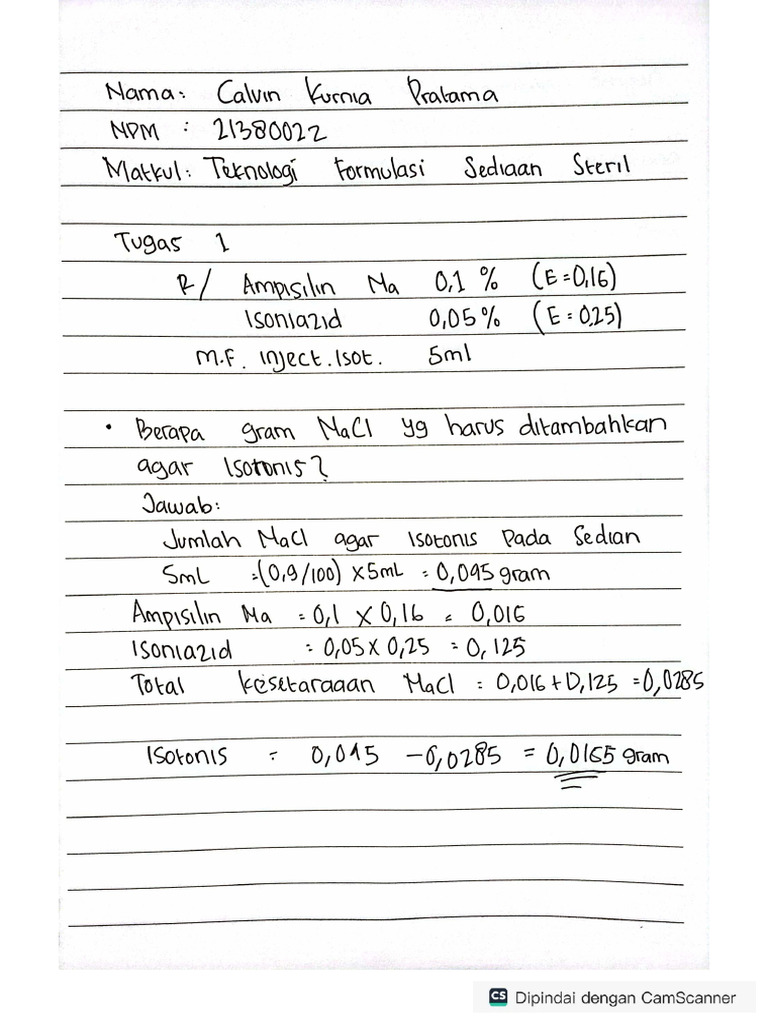 Nama: Calvin Kurnia Pratama
NPM : 21380022
Matkul: Teknologi Formulasi Sediaan Steril
Tugas 1
R/ Ampisilin Na 0,1 % (E=0,16)
Isoniazid 0,05% (E = 0,25)
M.F. inject. Isot. 5ml
• Berapa gram NaCl yg harus ditambahkan
agar Isotonis?
Jawab:
Jumlah NaCl agar Isotonis Pada Sedian
5mL =(0,9/100) x 5mL = 0,045 gram
Ampisilin Na = 0,1 x 0,16 = 0,016
Isoniazid = 0,05 x 0,25 = 0,125
Total kesetaraaan NaCl = 0,016 + 0,125 = 0,0285
Isotonis = 0,045 - 0,0285 = 0,0165 gram
CS Dipindai dengan CamScanner